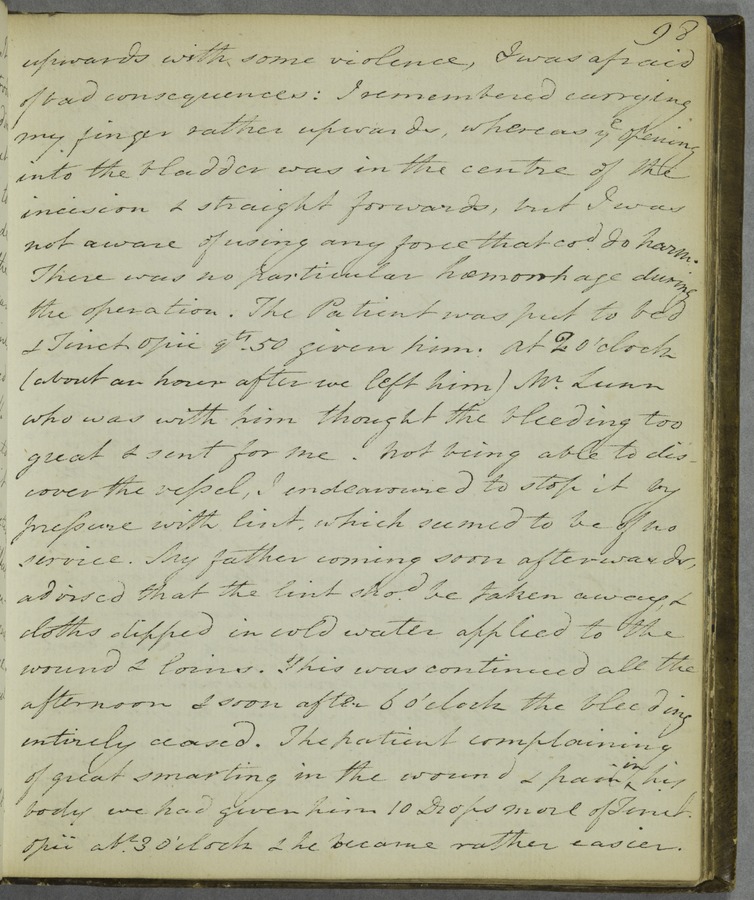 98
upwards with some violence, I was afraid
of bad consequences: I remembered carrying
my finger rather upwards, whereas yᵉ opening
into the bladder was in the centre of the
incision & straight forwards, but I was
not aware of using any force that coᵈ. do harm.
There was no particular hæmorrhage during
the operation. The Patient was put to bed
& Tinct opii gᵗᵗ. 50 given him. At 2 o'clock
(about an hour after we left him) Mʳ. Lunn
who was with him thought the bleeding too
great & sent for me. Not being able to dis-
cover the vessel, I endeavoured to stop it by
pressure with lint, which seemed to be of no
service. My father coming soon afterwards,
advised that the lint shoᵈ. be taken away, &
cloths dipped in cold water applied to the
wound & loins. This was continued all the
afternoon & soon after 6 o'clock the bleeding
entirely ceased. The patient complaining
of great smarting in the wound & pain in his
body we had given him 10 Drops more of Tinct.
opii abᵗ. 3 o'clock & he became rather easier.